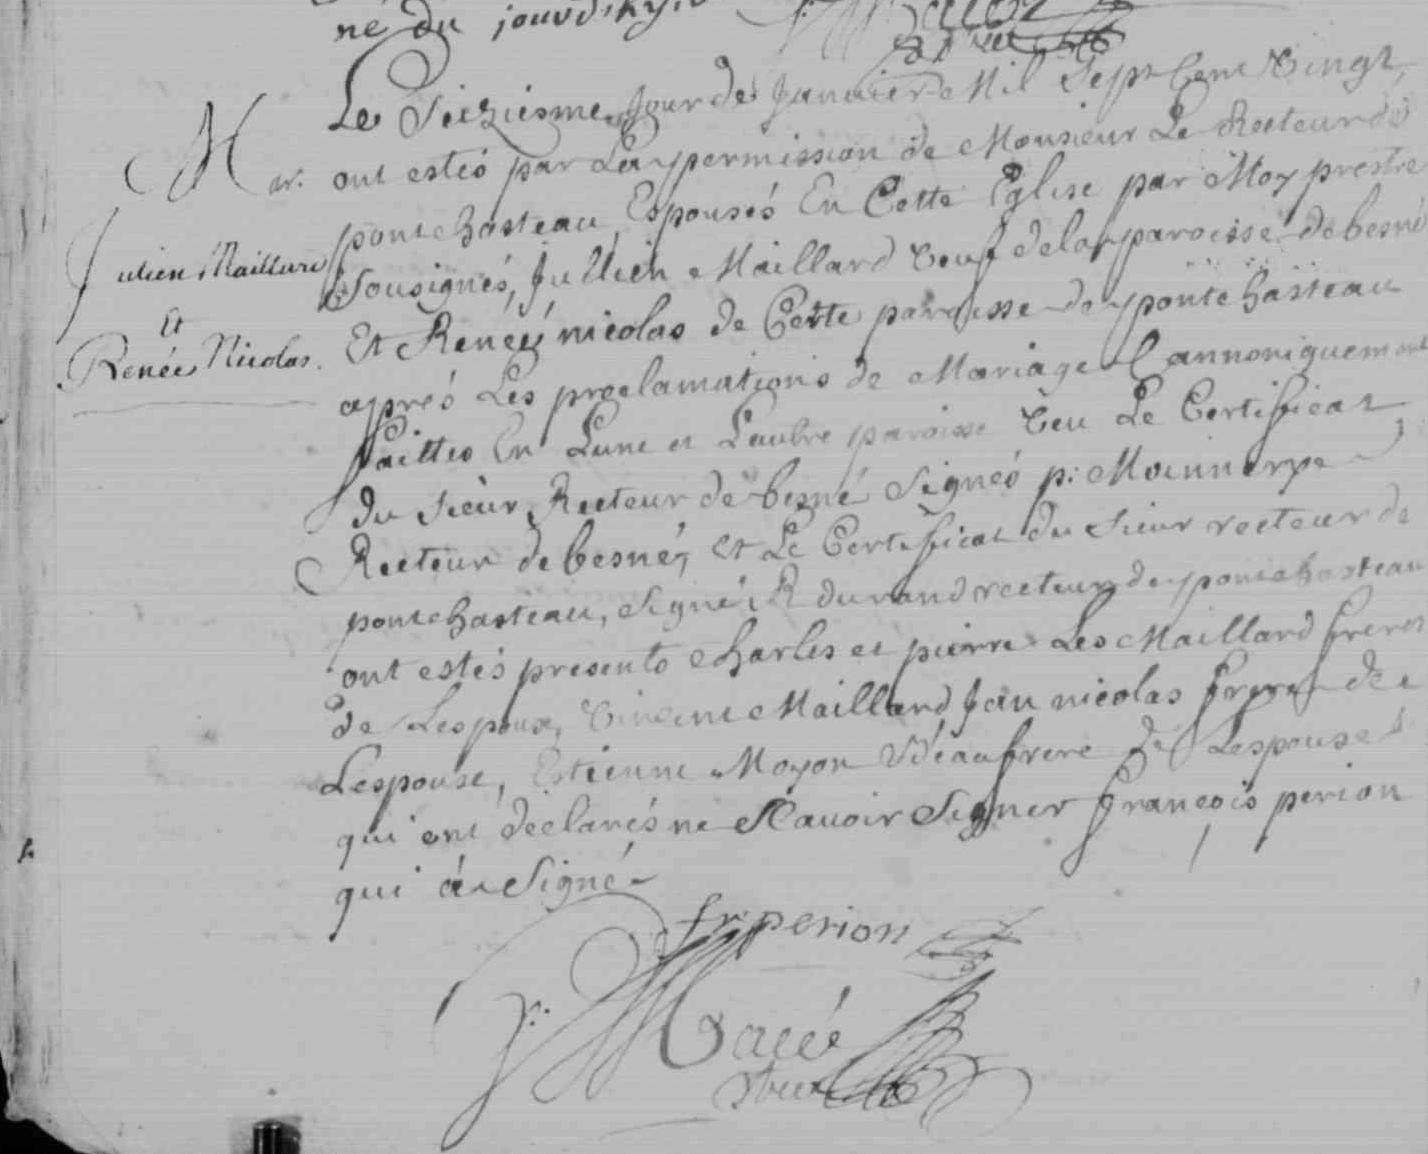 ne du jour d'hyer
Le Seiziesme Jour de Janvier Mil Sept Cent Vingt,
Mar. ont estés par La permission de Monsieur Le Recteur de
pontchasteau Espousés En Cette Eglise par Moy prestre
Julien Maillard Sousignés, Jullien Maillard Veuf de la paroisse de besné
Et
Renée Nicolas. Et Renée nicolas de Cette paroisse de pontchasteau
apprés Les proclamations de Mariage Cannoniquement
faittes En Lune et Laubre paroisse Veu Le Certificat
du sieur Recteur de besné Signés p:
Recteur de besné, et Le Certificat du sieur recteur de
pontchasteau, signé R durand recteur de pontchasteau
ont estés presents charles et pierre Les Maillard freres
de Lespoux, Vincent Maillard Jan nicolas frere de
Lespouse, Estienne Moyon Beaufrere de Lespouse
qui ont déclarés ne sCauoir Signer françois perion
qui a Signé
fr: perion
Macé